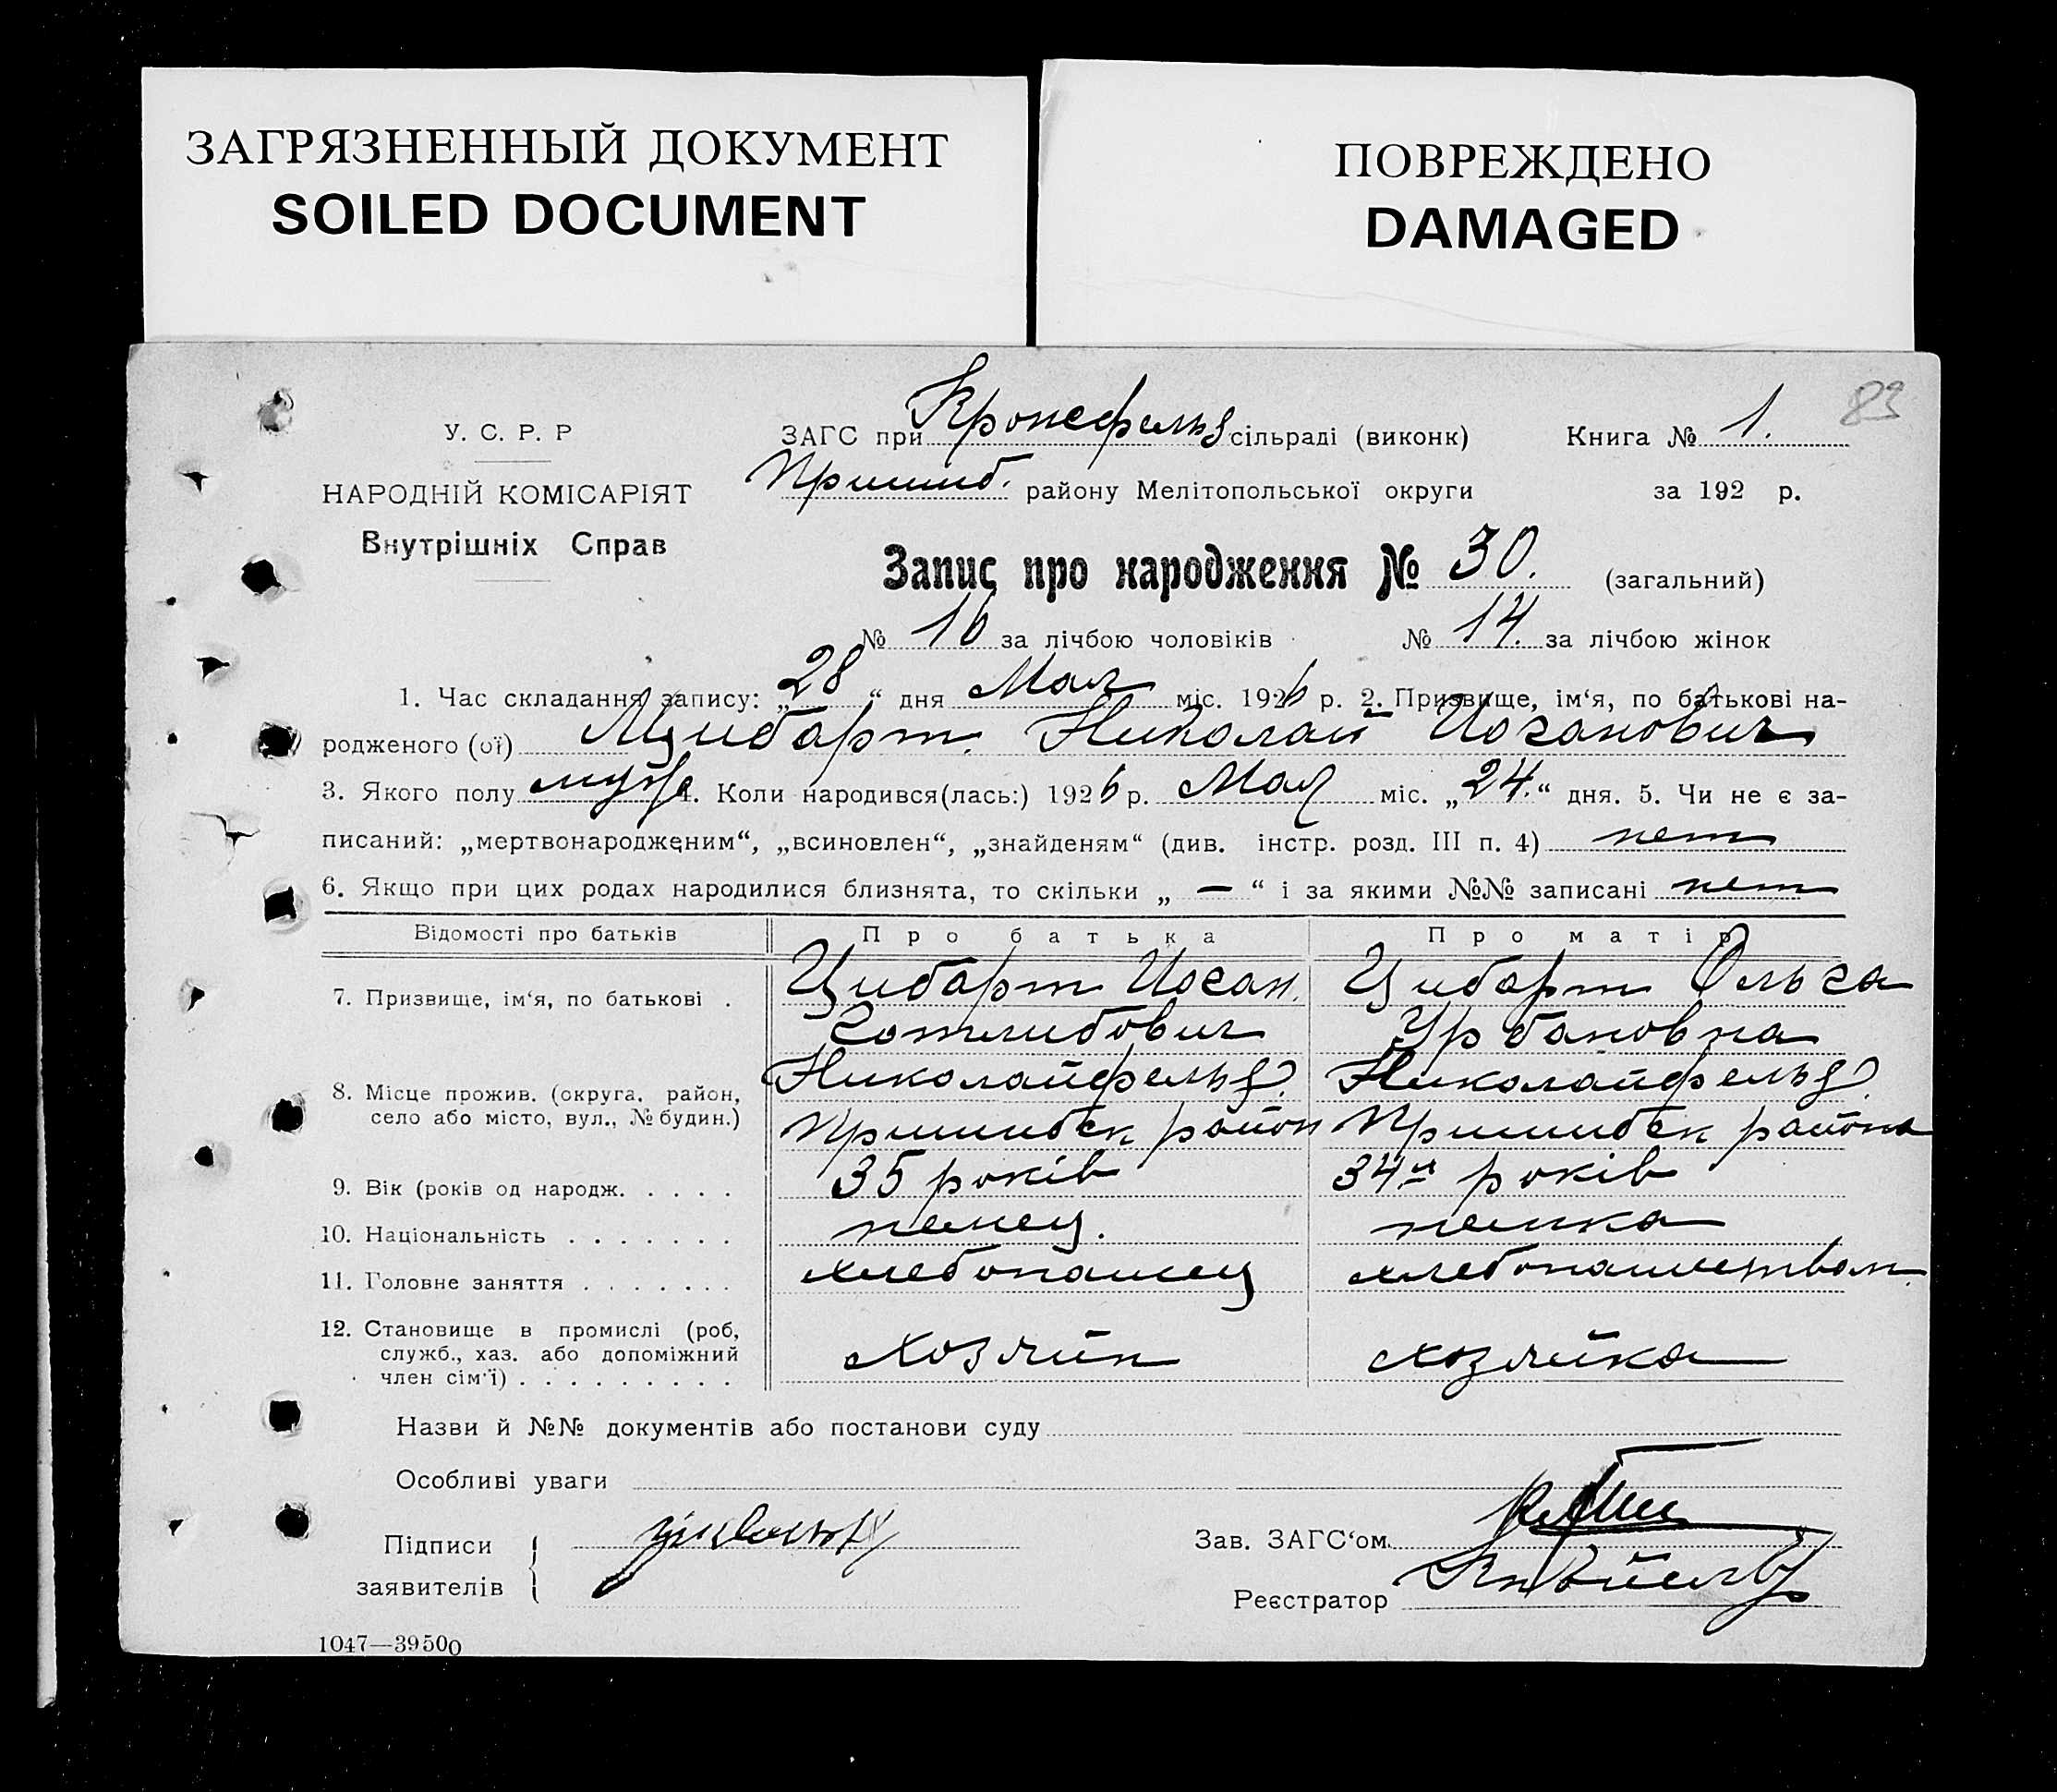 ЗАГРЯЗНЕННЫЙ ДОКУМЕНТ
SOILED DOCUMENT
ПОВРЕЖДЕНО
DAMAGED
83
У. С. Р. Р
НАРОДНІЙ КОМІСАРІЯТ
Внутрішніх Справ
ЗАГС при Кронсфельд сільраді (виконк) Книга № 1.
Пришиб. району Мелітопольської округи за 192 р.
Запис про народження № 30. (загальний)
№ 16 за лічбою чоловіків № 14. за лічбою жінок
1. Час складання запису: „28“ дня Мая міс. 1926 р. 2. Призвище, ім‘я, по батькові на-
родженого (ої) Цибарт Николай Иоганович
3. Якого полу муж 4. Коли народився(лась:) 1926 р. Мая міс. „24.“ дня. 5. Чи не є за-
писаний: „мертвонародженим“, „всиновлен“, „знайденям“ (див. інстр. розд. III п. 4) нет
6. Якщо при цих родах народилися близнята, то скільки „ — “ і за якими №№ записані нет
Відомості про батьків Про батька Про матір
7. Призвище, ім‘я, по батькові . Цибарт Иоган. Цибарт Ольга
Готлибович Урбановна
8. Місце прожив. (округа, район, село або місто, вул., № будин.) Николайфельд Николайфельд
Пришибск район Пришибск района
9. Вік (років од народж. . . . . 35 років 34 років
10. Національність . . . . . . . немец. немка
11. Головне заняття . . . . . . . хлебопашец хлебопашеством
12. Становище в промислі (роб,
служб., хаз. або допоміжний хозяйн хозяйка
член сім‘ї) . . . . . . . . .
Назви й №№ документів або постанови суду
Особливі уваги
Підписи
заявителів
Зав. ЗАГС‘ом
Реєстратор
1047—39500